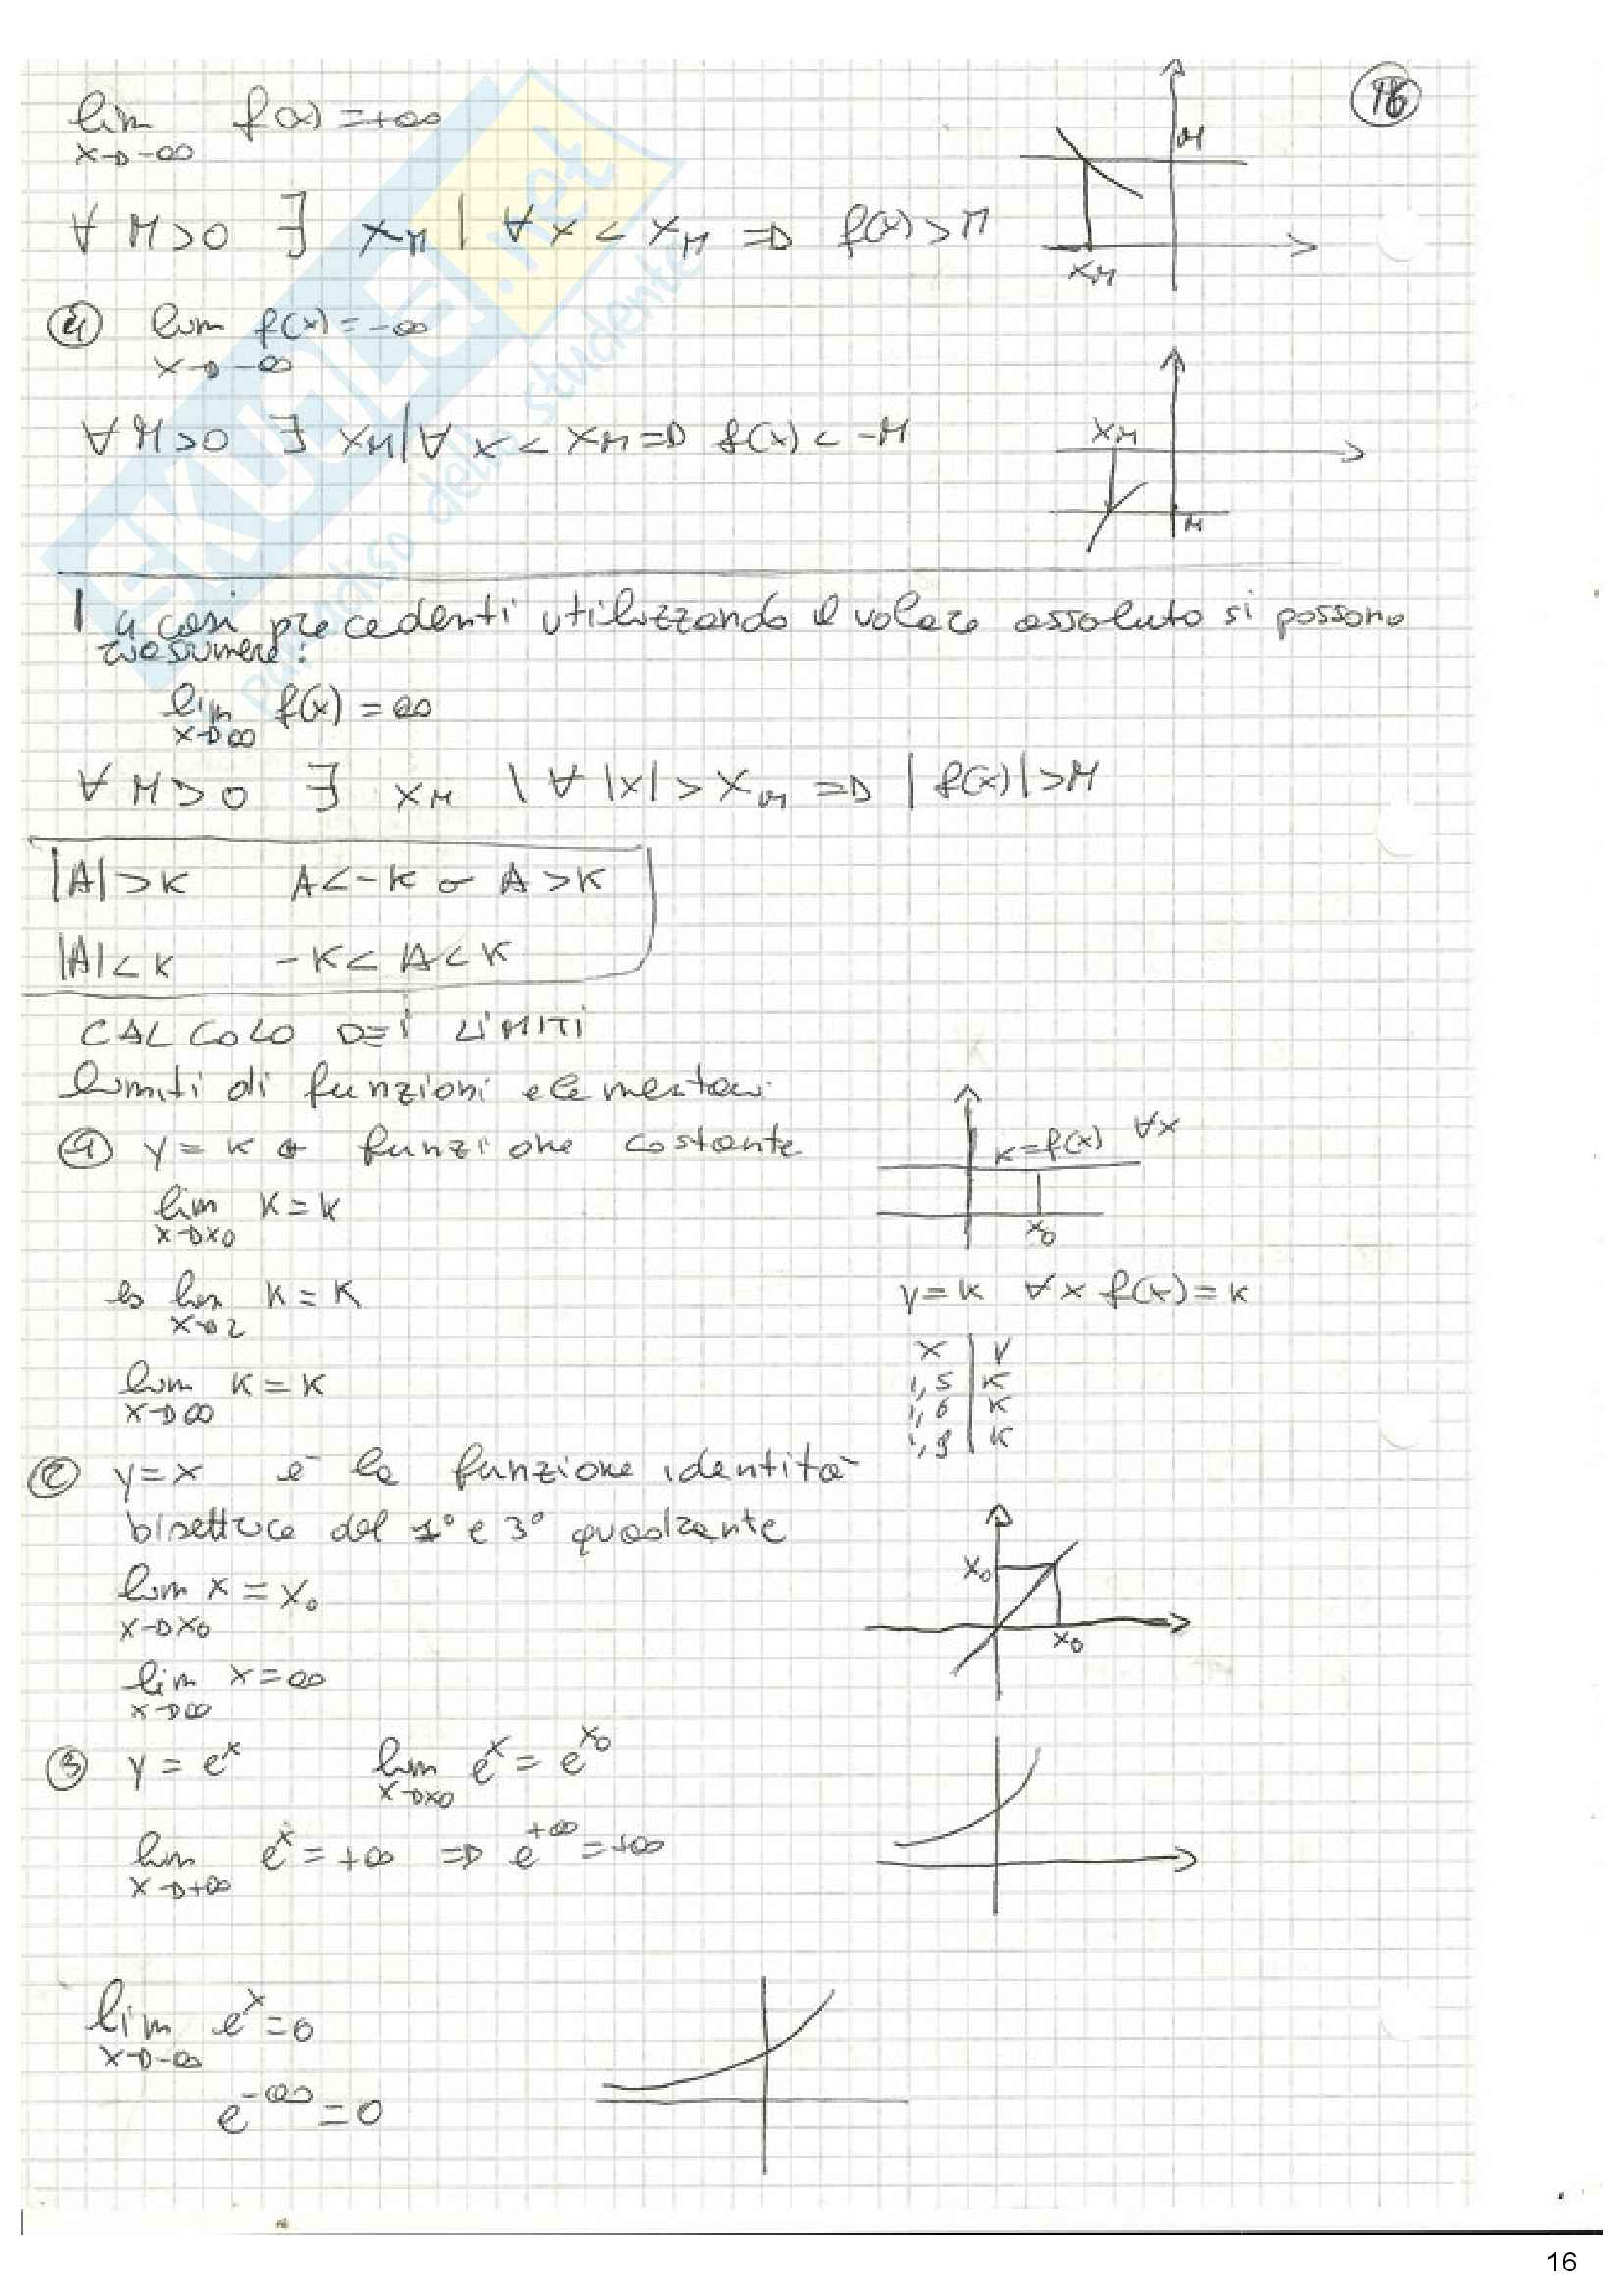 16
lim f(x) = +∞
x→-∞
M
∀ M>0 ∃ x_M | ∀ x < x_M ⇒ f(x) > M
x_M
④ lim f(x) = -∞
x→-∞
∀ M>0 ∃ x_M | ∀ x < x_M ⇒ f(x) < -M
x_M
M
I 4 casi precedenti utilizzando il valore assoluto si possono
riassumere:
lim f(x) = ∞
x→∞
∀ M>0 ∃ x_M | ∀ |x| > x_M ⇒ |f(x)| > M
|A| > K A < -K o A > K
|A| < K -K < A < K
CALCOLO DEI LIMITI
limiti di funzioni elementari
① y = K funzione costante
K = f(x) ∀x
lim K = K
x→x0
x0
es lim K = K
x→2
y = K ∀x f(x) = K
x | y
1,5 | K
1,6 | K
1,9 | K
lim K = K
x→∞
② y = x è la funzione identità
bisettrice del 1° e 3° quadrante
x0
x0
lim x = x0
x→x0
lim x = ∞
x→∞
③ y = e^x lim e^x = e^x0
x→x0
lim e^x = +∞ ⇒ e^+∞ = +∞
x→+∞
lim e^x = 0
x→-∞
e^-∞ = 0
16
SKUOLA.net
paradiso dello studente